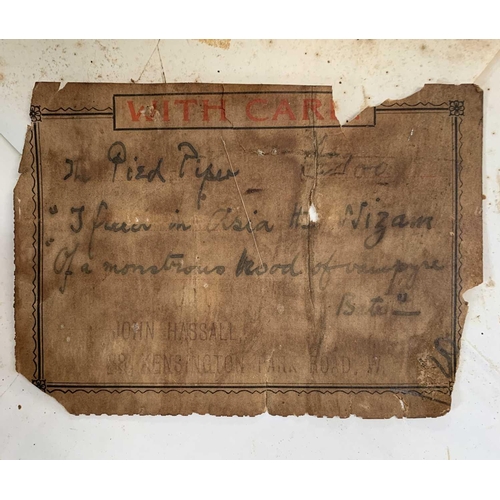 WITH CARE
The Pied Piper
"I freed in Asia the Nizam
"Of a monstrous brood of vampyre
Bats"
JOHN HASSALL,
KENSINGTON PARK ROAD. W.